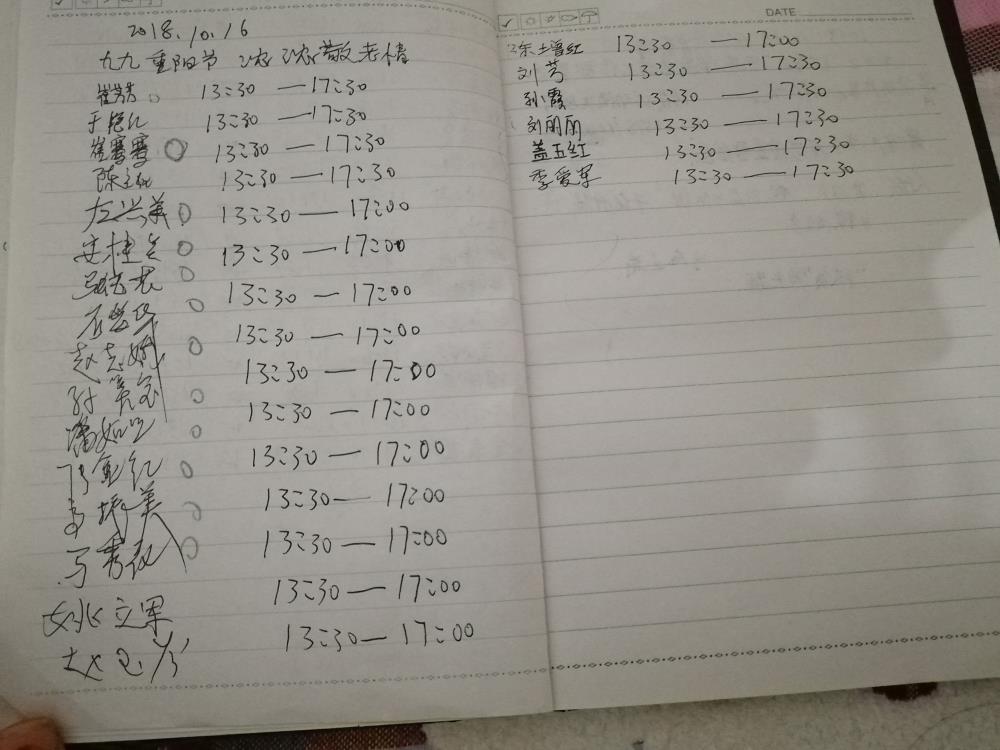 2018.10.16
九九重阳节 浓浓敬老情
崔芳 13:30 —17:30
于艳红 13:30 —17:30
崔赛赛 13:30 —17:30
陈 13:30 —17:30
左兴美 13:30 —17:00
安桂兰 13:30 —17:00
13:30 —17:00
13:30 —17:00
赵志娇 13:30 —17:00
孙 13:30 —17:00
潘如 13:30 —17:00
金红 13:30 —17:00
美 13:30 —17:00
马秀 13:30 —17:00
姚立军 13:30 —17:00
赵 13:30 —17:00
DATE
增红 13:30 —17:00
刘芳 13:30 —17:30
孙霞 13:30 —17:30
刘丽丽 13:30 —17:30
盖玉红 13:30 —17:30
季爱军 13:30 —17:30